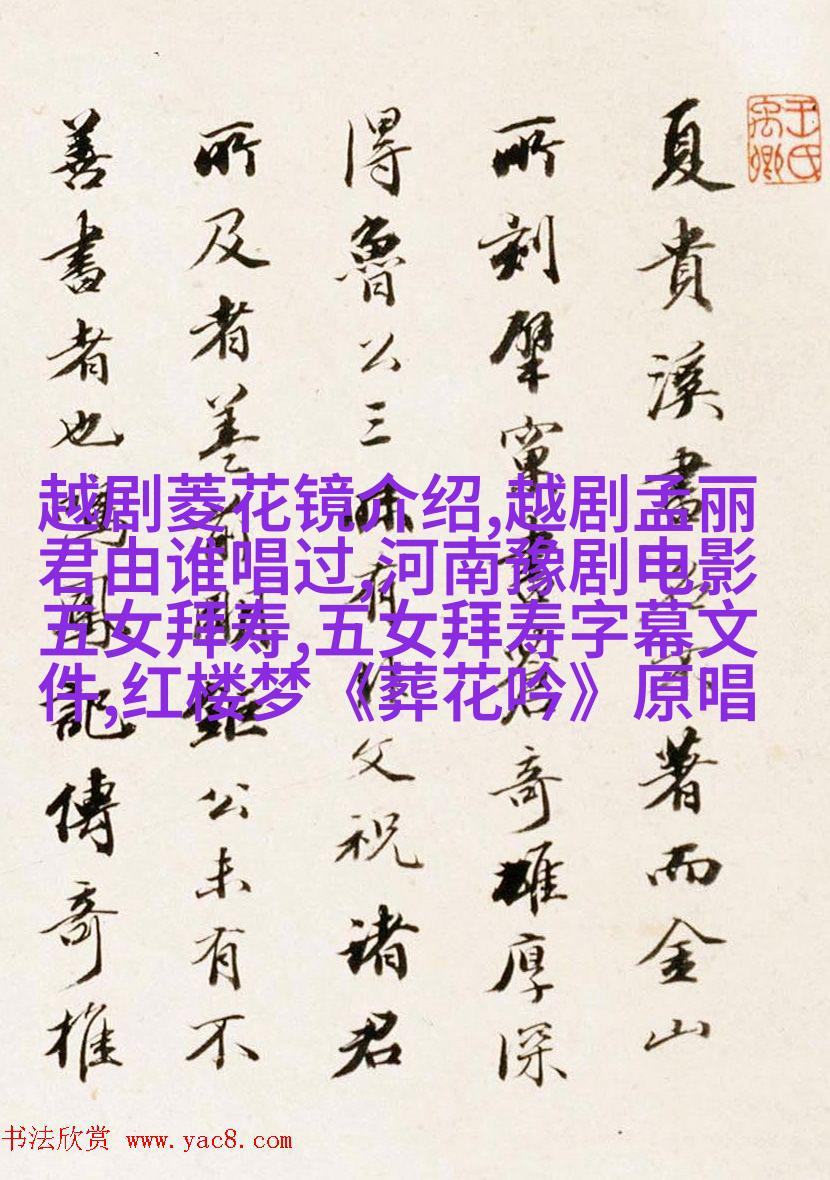 王氏禹卿
夏貴溪書著而金山
所刻擘窠書奇雄厚深
得魯公三昧有文祝諸君
所及者蓋前明鉅公未有不
善書者也鳴鳳記傳奇推
越剧菱花镜介绍,越剧孟丽
君由谁唱过,河南豫剧电影
五女拜寿,五女拜寿字幕文
件,红楼梦《葬花吟》原唱
书法欣赏 www.yac8.com